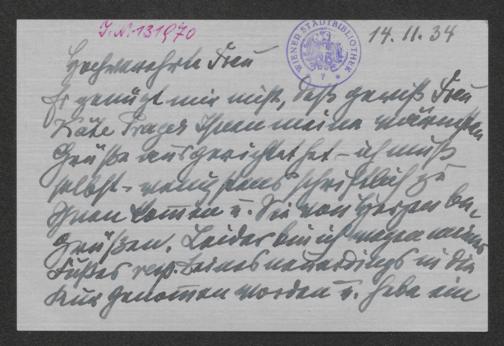 J.N. 131970
WIENER STADTBIBLIOTHEK
14. II. 34
Hochverehrte Frau
Es genügt mir nicht, daß gewiß Frau
Käte Prager Ihnen meine wärmsten
Grüße ausgerichtet hat – ich muß
selbst – wenigstens schriftlich zu
Ihnen kommen u. Sie von Herzen be-
grüßen. Leider bin ich wegen meines
Fußes resp. Beines neuerdings in die
Kur genommen worden u. habe ein